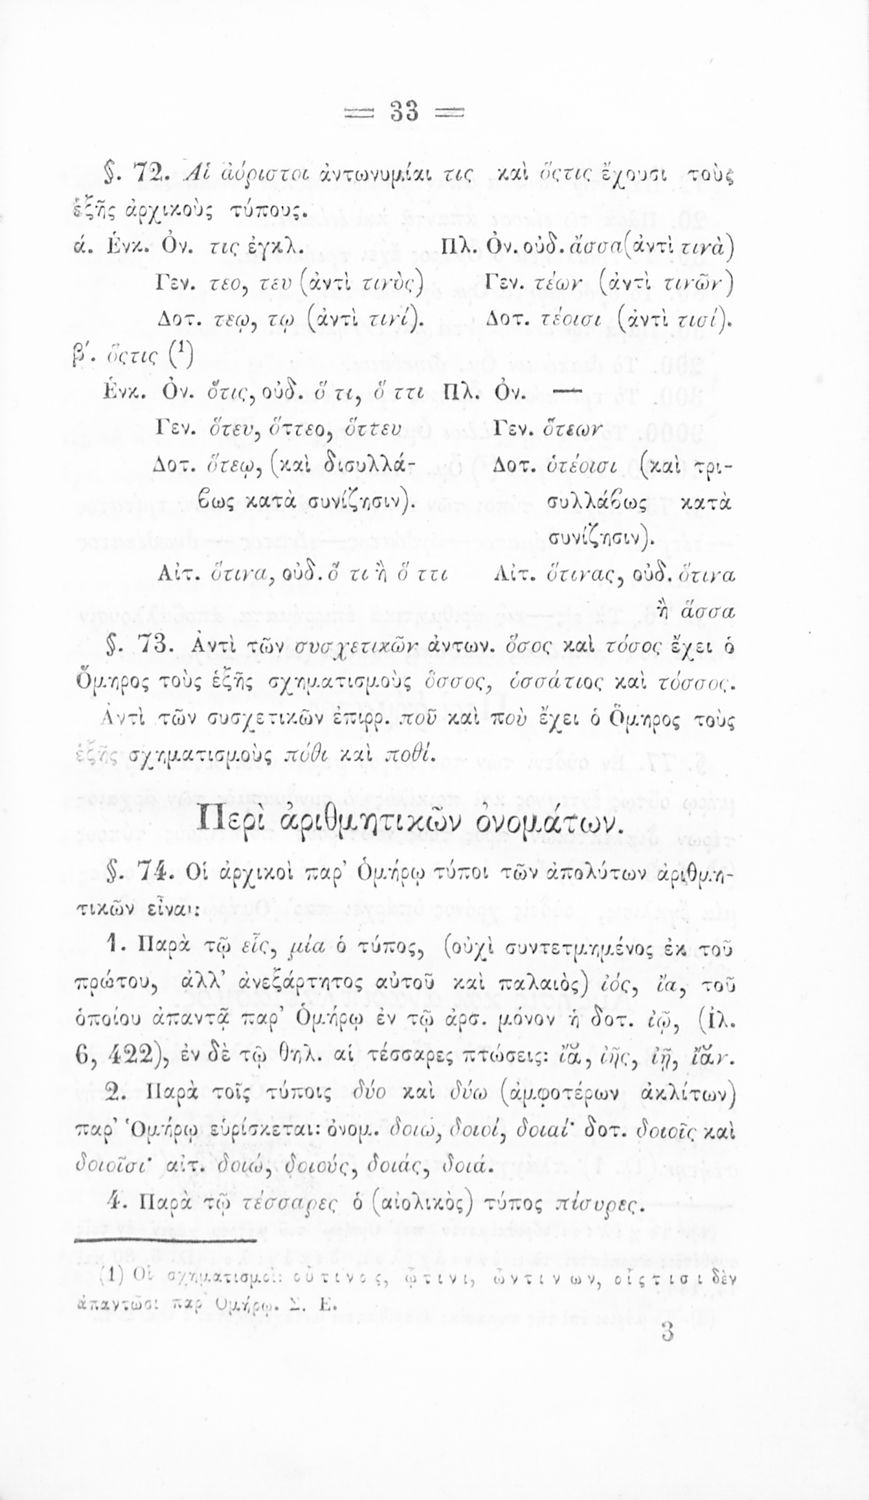 = 33 =
§. 72. Αἱ ἀόριστοι ἀντωνυμίαι τις καὶ ὅςτις ἔχουσι τοὺς
ἑξῆς ἀρχικοὺς τύπους.
ά. Ἑνκ. Ὀν. τις ἐγκλ. Πλ. Ὀν. οὐδ. ἄσσα (ἀντὶ τινὰ)
Γεν. τεο, τευ (ἀντὶ τινὸς) Γεν. τέων (ἀντὶ τινῶν)
Δοτ. τεῳ, τῳ (ἀντὶ τινί). Δοτ. τέοισι (ἀντὶ τισί).
β΄. ὅςτις (¹)
Ἑνκ. Ὀν. ὅτις, οὐδ. ὅ τι, ὅ ττι Πλ. Ὀν. —
Γεν. ὅτευ, ὅττεο, ὅττευ Γεν. ὅτεων
Δοτ. ὅτεῳ, (καὶ δισυλλά- Δοτ. ὁτέοισι (καὶ τρι-
βως κατὰ συνίζησιν). συλλάβως κατὰ
συνίζησιν).
Αἰτ. ὅτινα, οὐδ. ὅ τι ἢ ὅ ττι Αἰτ. ὅτινας, οὐδ. ὅτινα
ἢ ἅσσα
§. 73. Ἀντὶ τῶν συσχετικῶν ἀντων. ὅσος καὶ τόσος ἔχει ὁ
Ὅμηρος τοὺς ἑξῆς σχηματισμοὺς ὅσσος, ὁσσάτιος καὶ τόσσος.
Ἀντὶ τῶν συσχετικῶν ἐπιρρ. ποῦ καὶ ποὺ ἔχει ὁ Ὅμηρος τοὺς
ἑξῆς σχηματισμοὺς πόθι καὶ ποθί.
Περὶ ἀριθμητικῶν ὀνομάτων.
§. 74. Οἱ ἀρχικοὶ παρ’ Ὁμήρῳ τύποι τῶν ἀπολύτων ἀριθμη-
τικῶν εἶναι:
1. Παρὰ τῷ εἷς, μία ὁ τύπος, (οὐχὶ συντετμημένος ἐκ τοῦ
πρώτου, ἀλλ’ ἀνεξάρτητος αὐτοῦ καὶ παλαιὸς) ἰός, ἴα, τοῦ
ὁποίου ἀπαντᾷ παρ’ Ὁμήρῳ ἐν τῷ ἀρσ. μόνον ἡ δοτ. ἰῷ, (Ἰλ.
6, 422), ἐν δὲ τῷ θηλ. αἱ τέσσαρες πτώσεις: ἴᾰ, ἰῆς, ἰῇ, ἴᾰν.
2. Παρὰ τοῖς τύποις δύο καὶ δύω (ἀμφοτέρων ἀκλίτων)
παρ’ Ὁμήρῳ εὑρίσκεται: ὀνομ. δοιώ, δοιοί, δοιαί· δοτ. δοιοῖς καὶ
δοιοῖσι· αἰτ. δοιώ, δοιούς, δοιάς, δοιά.
4. Παρὰ τῷ τέσσαρες ὁ (αἰολικὸς) τύπος πίσυρες.
(1) Οἱ σχηματισμοὶ: οὗτινος, ᾧτινι, ὧντινων, οἷςτισι δὲν
ἀπαντῶσι παρ Ὁμήρῳ. Σ. Ε.
3